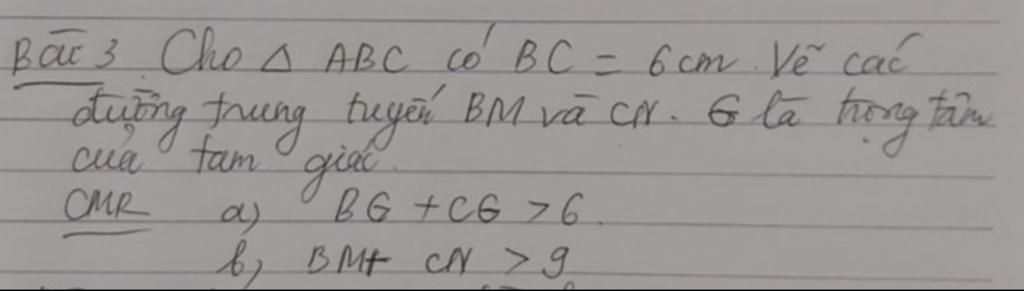 Bài 3 Cho Δ ABC có BC = 6cm. Vẽ các
đường trung tuyến BM và CN. G là trọng tâm
của tam giác.
CMR a) BG + CG > 6.
b) BM + CN > 9